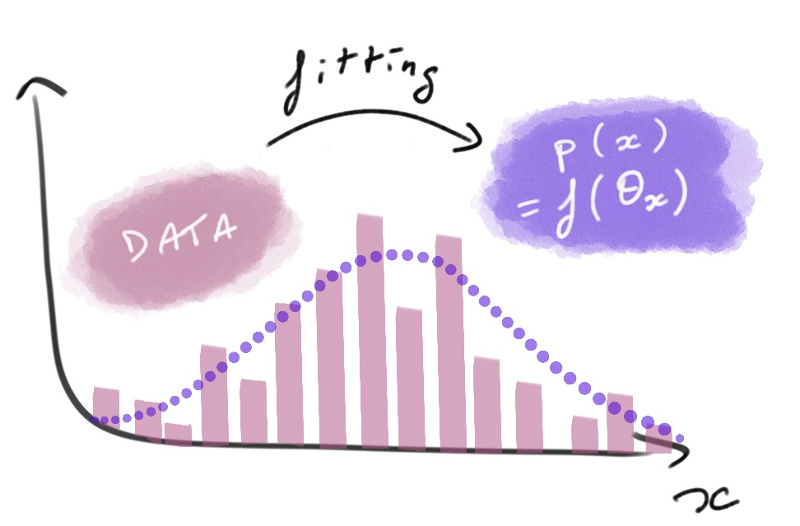 fitting
DATA
p(x)
= f(θₓ)
x